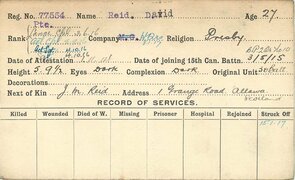 Reg. No. 77554 Name Reid, David Age 27
Pte.
Rank Company Religion Presby
Date of Attestation Date of joining 15th Can. Battn. 3/5/15
Height 5 9½ Eyes Dark Complexion Dark Original Unit
Decorations
Next of Kin J. M. Reid Address 1 Grange Road Alloa
Scotland
RECORD OF SERVICES.
Killed Wounded Died of W. Missing Prisoner Hospital Rejoined Struck Off